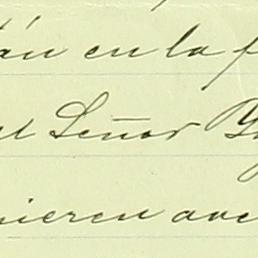 án en la f
el Señor
nieren ave